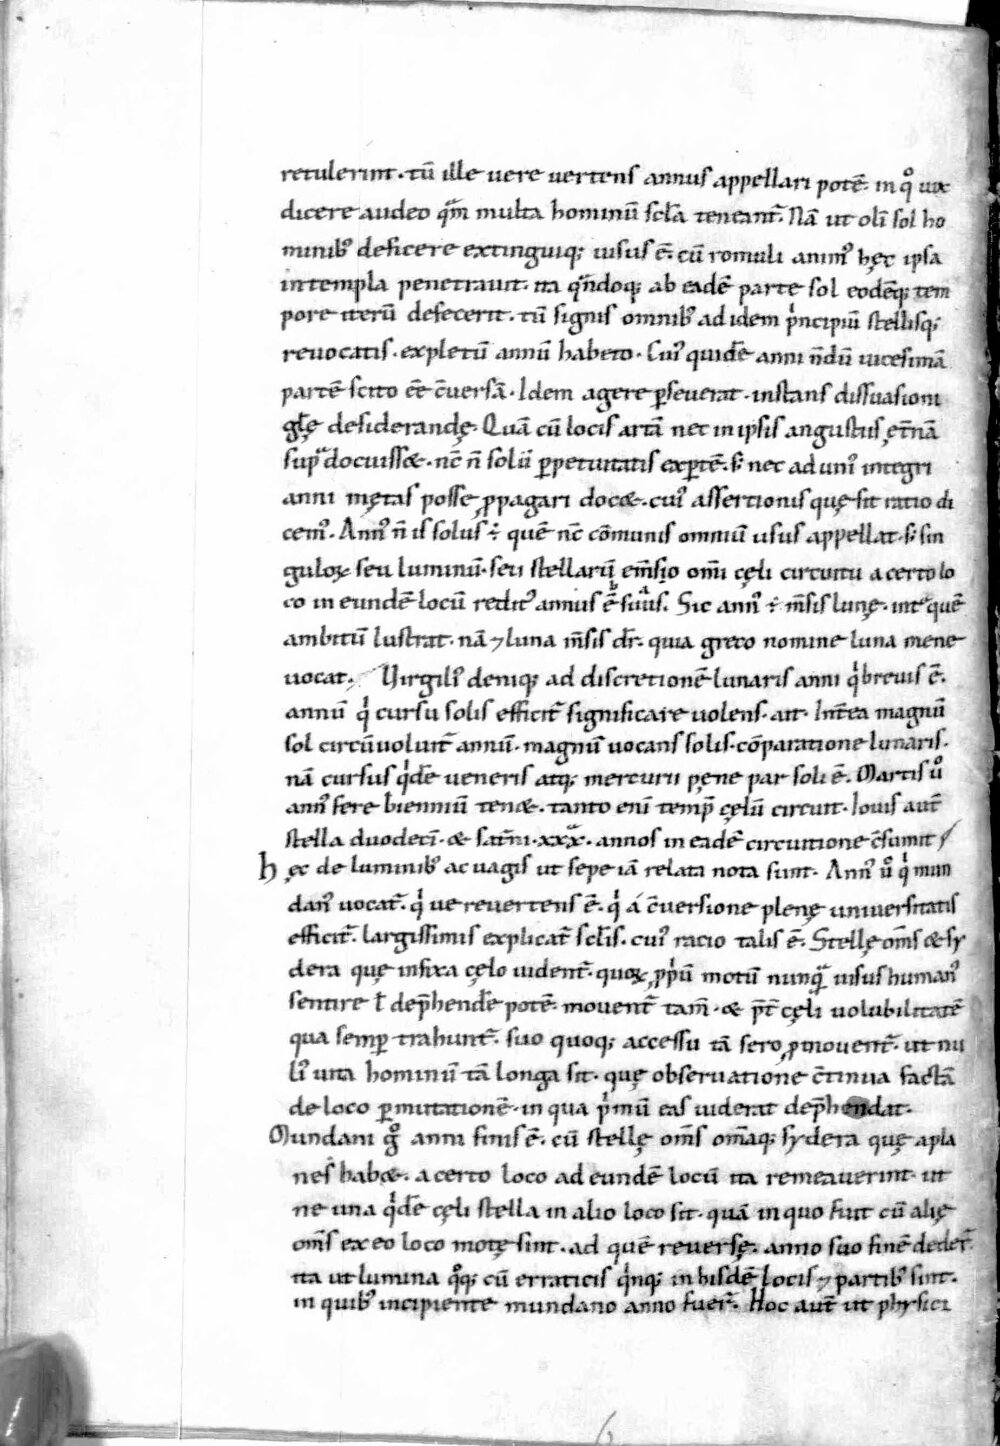 retulerint · tū ille uere uertens annus appellari potē· in qͦ uix
dicere audeo qᵃm multa hominū scl̄a teneant̄· Nā ut olī sol ho
minibꝰ deficere extinguiq; uisus ē· cū romuli animꝰ hęc ipsa
in templa penetrauit· ita qᵃndoq; ab eadē parte sol eodēq; tem
pore iterū defecerit · tū signis omnibꝰ ad idem pⁱncipiū stellisq;
reuocatis · expletū annū habeto · Cuiꝰ quidē anni nōdū uicesimā
partē scito eē c̄uersā · Idem agere ꝑseuerat · instans dissuasioni
gl̄ę desiderandę· Quā cū locis artā nec in ipsis angustus ęt̄nā
supᵃ docuiss& · nc̄ n̄ solū ꝑpetuitatis exꝑtē · s; nec ad unīꝰ integri
anni mętas posse ꝓpagari doc& · cuiꝰ assertionis quę sit ratio di
cemꝰ · Annꝰ n̄ is solus ÷ quē nc̄ cōmunis omniū usus appellat · s; sin
guloꝝ seu luminū · seu stellarū em̄sio om̄i cęli circuitu a certo lo
co in eundē locū reditꝰ annus ē suus · Sic annꝰ ÷ m̄sis lunę · intᵃ quē
ambitū lustrat · nā ⁊ luna m̄sis dr̄ · quia greco nomine luna mene
uocat · Uirgiliꝰ deniq; ad discretionē lunaris anni qⁱ breuis ē·
annū qⁱ cursu solis efficit̄ significare uolens · ait · Int̄ea magnū
sol circūuoluit̄ annū · magnū uocans solis · cōparatione lunaris ·
nā cursus qⁱdē ueneris atq; mercurii pęne par soli ē · Martis uͦ
annꝰ fere bienniū ten& · tanto eni temp̄ cęlū circuit · Iouis aut̄
stella duodecī · & sat̄ni · xxxᵃ · annos in eadē circuitione c̄sumit
hęc de luminibꝰ ac uagis ut sepe iā relata nota sunt · Annꝰ uͦ qⁱ mun
danꝰ uocat̄ · qⁱ ue reuertens ē · qⁱ a c̄uersione plenę uniuersitatis
efficit̄ · largissimis explicat̄ scl̄is · cuiꝰ racio talis ē · Stellę om̄s & sy
dera quę infixa cęlo uident̄ · quoꝝ ꝓpⁱū motū nunqᵃ uisus humanꝰ
sentire l̄ dep̄hendēre potē · mouent̄ tam̄ · & p̄t̄ cęli uolubilitatē
qua semꝑ trahunt̄ · suo quoq; accessu tā sero ꝓmouent̄ · ut nu
lꝰ uita hominū tā longa sit · quę obseruatione c̄tinua factā
de loco ꝑmutationē · in qua pⁱmū eas uiderat dep̄hendat·
Mundani gͦ anni finis ē · cū stellę om̄s om̄aq; sydera quę apla
nes hab& · a certo loco ad eundē locū ita remeauerint · ut
ne una qⁱdē cęli stella in alio loco sit · quā in quo fuit cū alię
om̄s ex eo loco motę sint · ad quē reuersę · anno suo finē dedert̄
ita ut lumina qͦq; cū erraticis qⁱnq; in hisdē locis ⁊ partibꝰ sint ·
in quibꝰ incipiente mundano anno fuer̄ · Hoc aut̄ ut physici